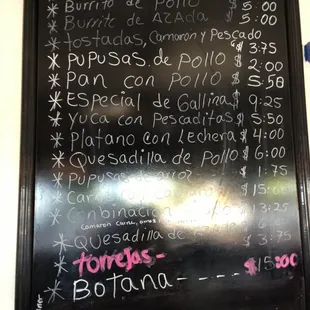 * Burrito de Pollo $ 5:00
* Burrito de AZAda $ 5:00
* tostadas, Camaron y Pescado
$ 3:75
* PUPUSAS de Pollo $ 2:00
* Pan con Pollo $ 5:50
* Especial de Gallina $ 9:25
* Yuca con Pescaditas $ 5:50
* Platano con Lechera $ 4:00
* Quesadilla de Pollo $ 6:00
* Pupusas de arroz $ 1:75
* $ 15:00
* Combinacion 13:25
* Quesadilla de $ 3:75
* torrejas-
* Botana---- $15:00